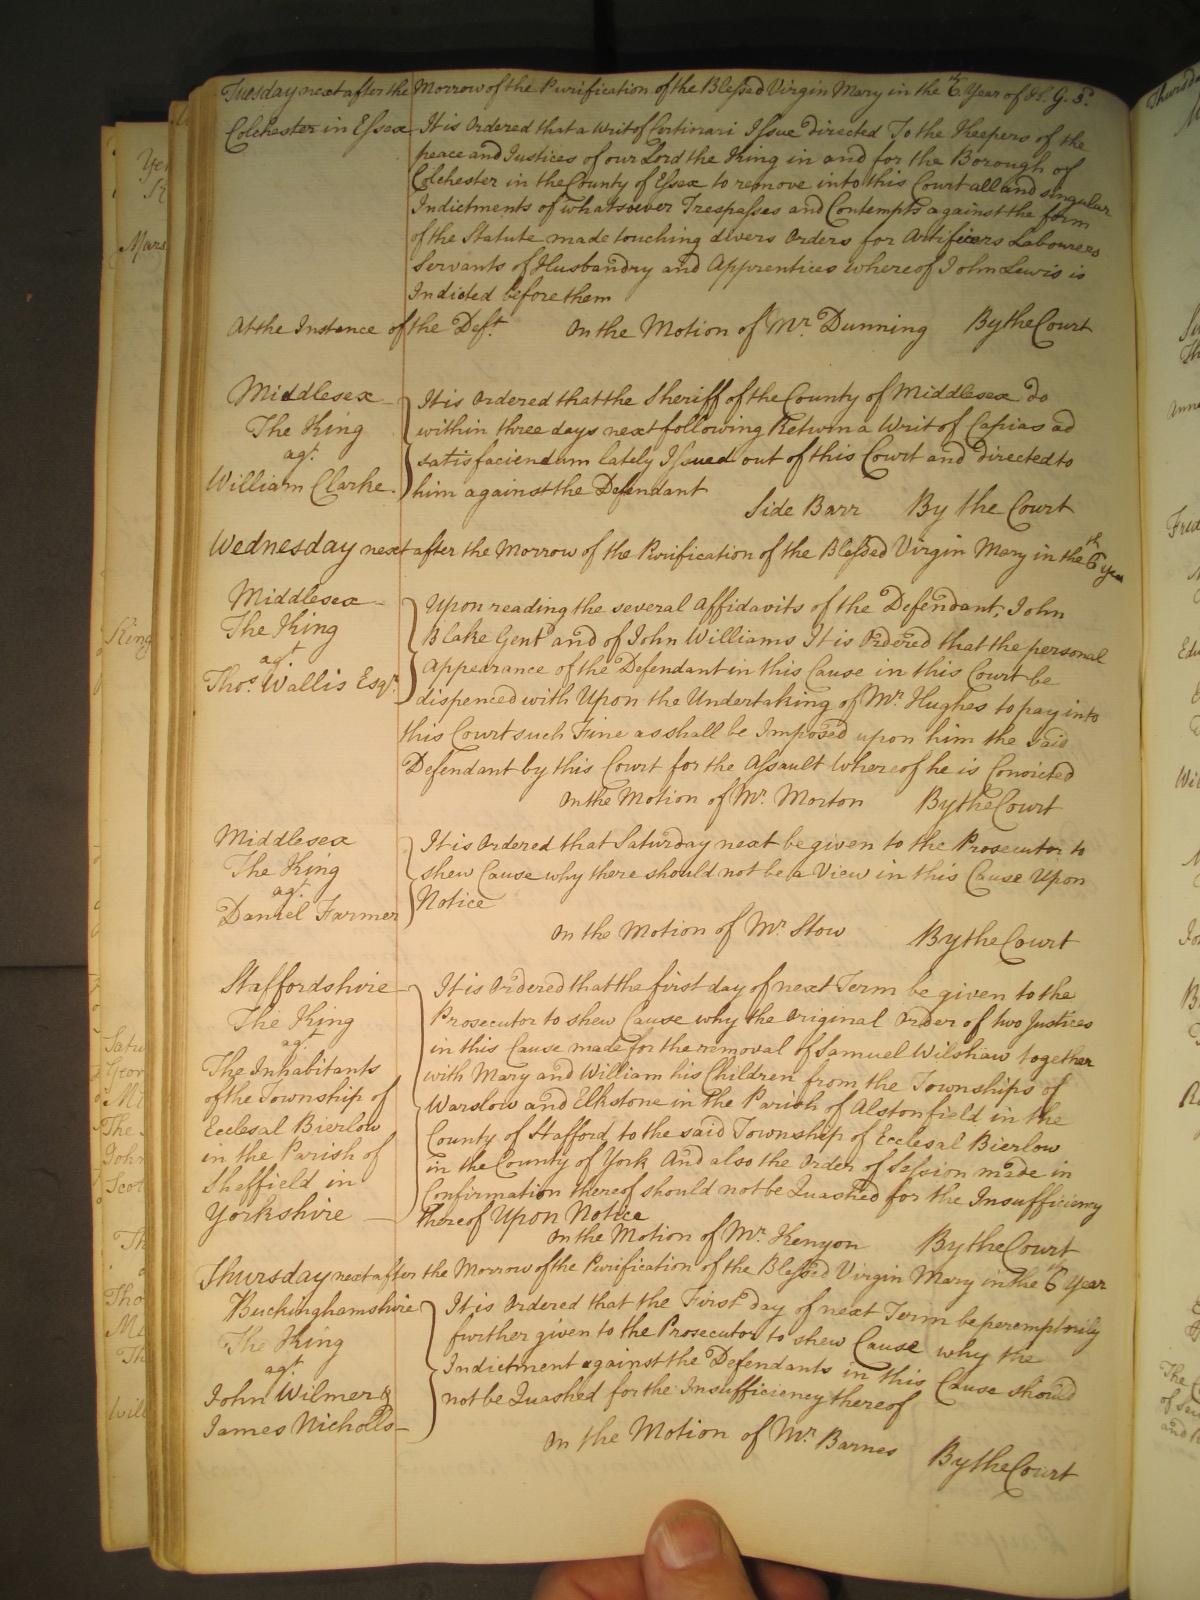 Tuesday next after the Morrow of the Purification of the Blessed Virgin Mary in the 6th Year of K. G. 3d.
Colchester in Essex It is Ordered that a Writ of Certiorari Issue directed To the Keepers of the
peace and Justices of our Lord the King in and for the Borough of
Colchester in the County of Essex to remove into this Court all and singular
Indictments of whatsoever Trespasses and Contempts against the form
of the Statute made touching divers Orders for Artificers Labourers
Servants of Husbandry and Apprentices whereof John Lewis is
Indicted before them
At the Instance of the Deft. On the Motion of Mr. Dunning By the Court
Middlesex
The King
agt.
William Clarke
It is Ordered that the Sheriff of the County of Middlesex do
within three days next following Return a Writ of Capias ad
satisfaciendum lately Issued out of this Court and directed to
him against the Defendant
Side Barr By the Court
Wednesday next after the Morrow of the Purification of the Blessed Virgin Mary in the 6th year
Middlesex
The King
agt.
Thos. Wallis Esqr.
Upon reading the several Affidavits of the Defendant, John
Blake Gent and of John Williams It is Ordered that the personal
Appearance of the Defendant in this Cause in this Court be
dispenced with Upon the Undertaking of Mr. Hughes to pay into
this Court such Fine as shall be Imposed upon him the said
Defendant by this Court for the Assault Whereof he is Convicted
On the Motion of Mr. Morton By the Court
Middlesex
The King
agt.
Daniel Farmer
It is Ordered that Saturday next be given to the Prosecutor to
shew Cause why there should not be a View in this Cause Upon
Notice
On the Motion of Mr. Stow By the Court
Staffordshire
The King
agt.
The Inhabitants
of the Township of
Ecclesal Bierlow
in the Parish of
Sheffield in
Yorkshire
It is Ordered that the first day of next Term be given to the
Prosecutor to shew Cause why the Original Order of two Justices
in this Cause made for the removal of Samuel Wilshaw together
with Mary and William his Children from the Townships of
Warslow and Elkstone in the Parish of Alstonfield in the
County of Stafford to the said Township of Ecclesal Bierlow
in the County of York And also the Order of Session made in
Confirmation thereof should not be Quashed for the Insufficiency
thereof Upon Notice
On the Motion of Mr. Kenyon By the Court
Thursday next after the Morrow of the Purification of the Blessed Virgin Mary in the 6th Year
Buckinghamshire
The King
agt.
John Wilmer &
James Nicholls
It is Ordered that the First day of next Term be peremptorily
further given to the Prosecutor to shew Cause why the
Indictment against the Defendants in this Cause should
not be Quashed for the Insufficiency thereof
On the Motion of Mr. Barnes By the Court